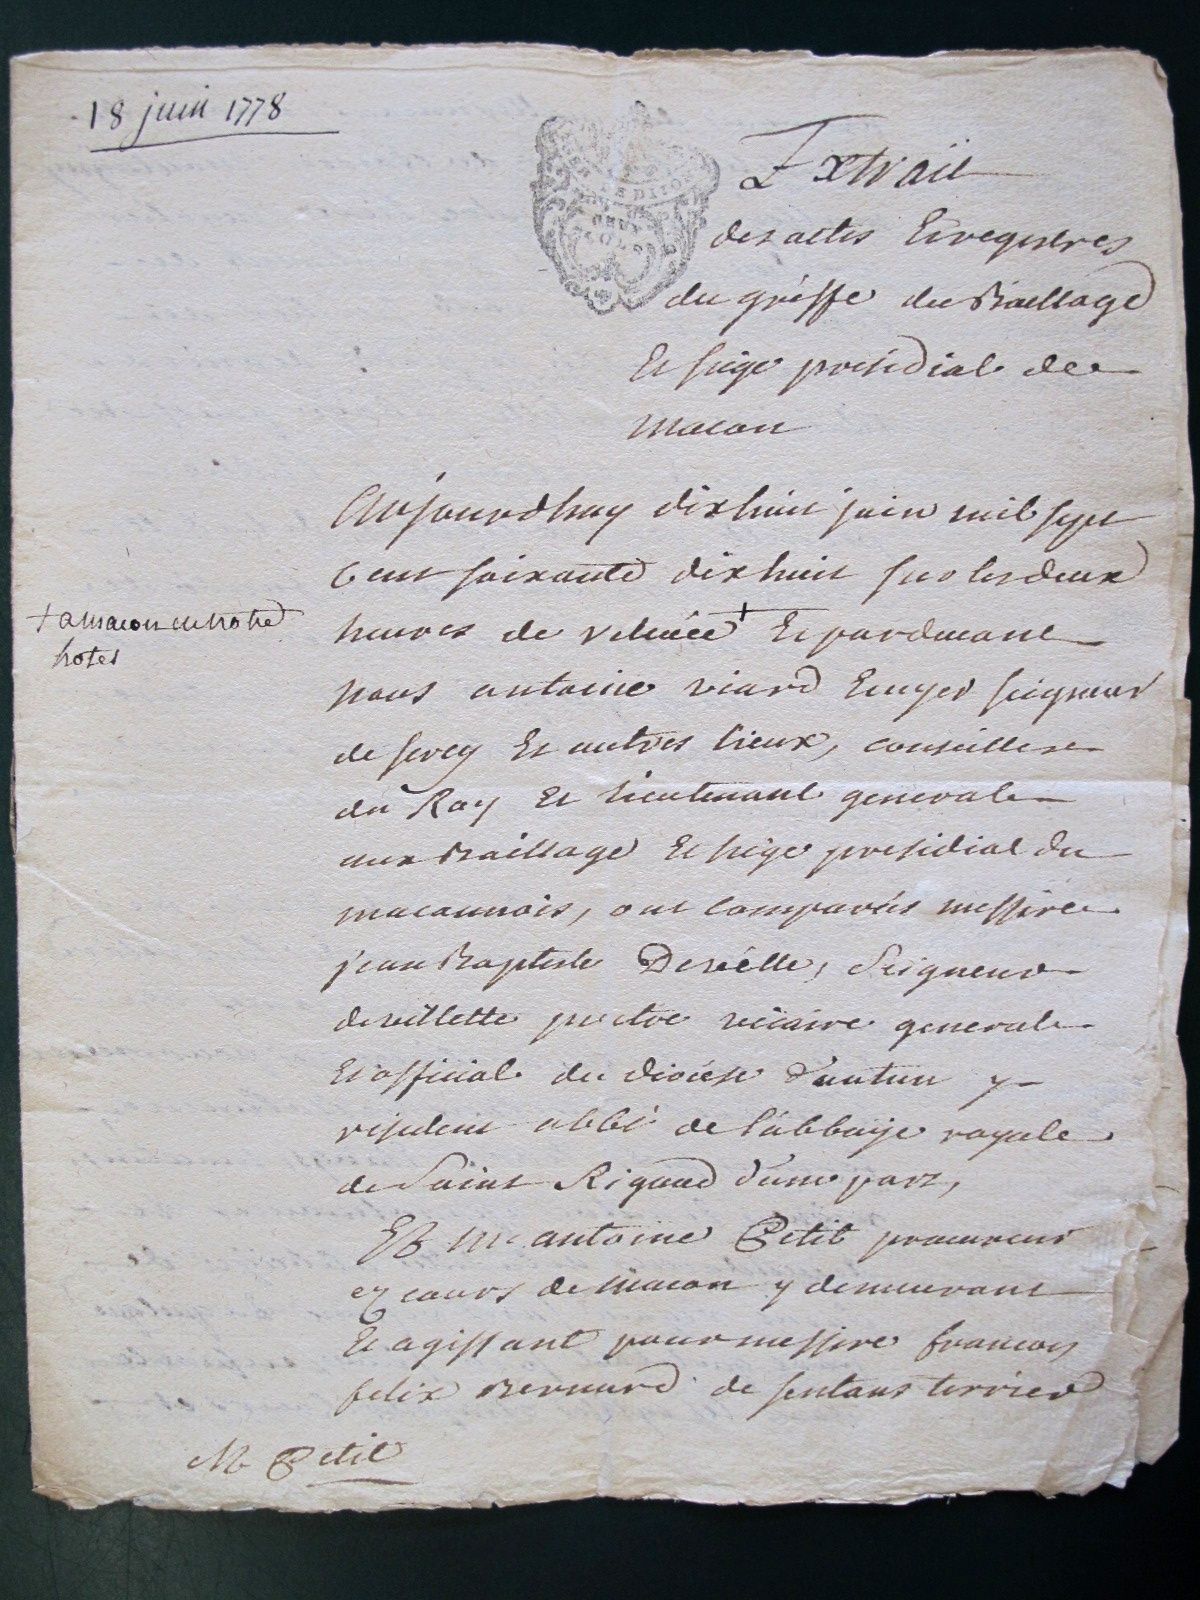 18 juin 1778
DEUX
SOLS
Extrait
des actes Et registres
du gréffe du Baillage
Et siege presidial de
macon
Aujourdhuy dix huit juin mil sept
Cent soixante dix huit sur les deux
heures de relevée + Et pardevant
+ a macon en notre
hotel
nous antoine viard Ecuyer seigneur
de sercy Et autres lieux, conseiller
du Roy Et lieutenant general
aux Baillage Et siege presidial du
maconnois, ont comparus messire
jean Baptiste Deréelle, Seigneur
de villette prêtre vicaire general
Et official du diocése d'autun y
résident abbé de l'abbaye royale
de Saint Rigaud d'une part,
Et Me antoine Petit procureur
ez cours de macon y demeurant
Et agissant pour messire francois
felix Bernard de sentans terrier
Petit